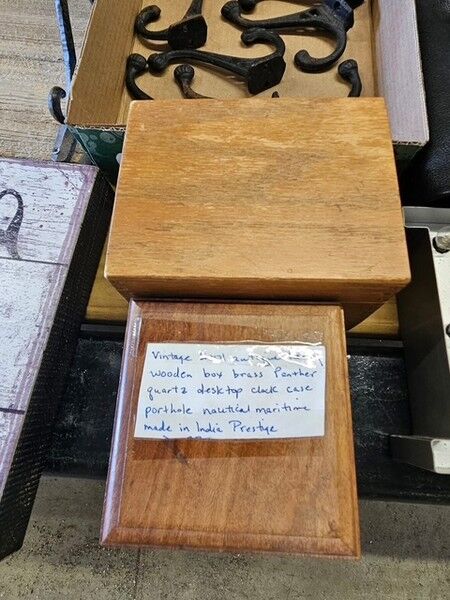 Vintage antique
wooden box brass Panther
quartz desktop clock case
porthole nautical maritime
made in India Prestige